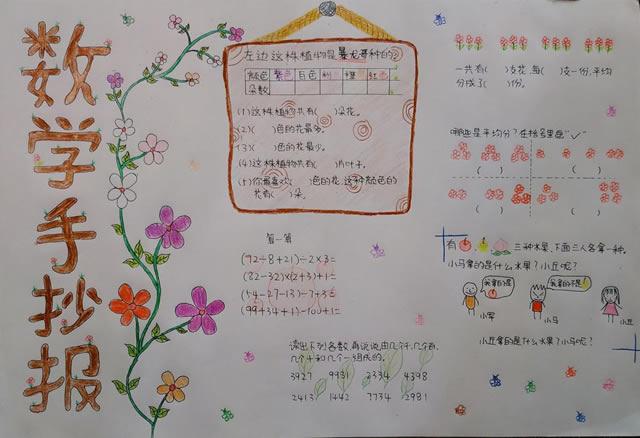 数学手抄报
左边这株植物是暴龙哥种的?
颜色 紫色 白色 粉 橙 红色
朵数
(1)这株植物共有( )朵花。
(2)( )色的花最多。
(3)( )色的花最少。
(4)这株植物共有( )片叶子。
(5)你最喜欢( )色的花,这种颜色的
花有( )朵。
算一算
(92-8+21)÷2×3=
(82-32)×(2+3)+1=
(54-27-13)÷7+3=
(99+34+1)-100+1=
读出下列各数,再说说由几个千,几个百,
几个十和几个一组成的。
3927 9931 2334 4398
2413 1442 7734 2981
一共有( )支花,每( )支一份,平均
分成了( )份。
哪些是平均分?在括号里画“✓”
( ) ( )
( ) ( )
有 , , 三种水果,下面三人各拿一种。
小马拿的是什么水果?小丘呢?
我拿的是
我拿的不是
小军 小马 小丘
小丘拿的是什么水果?小马呢?